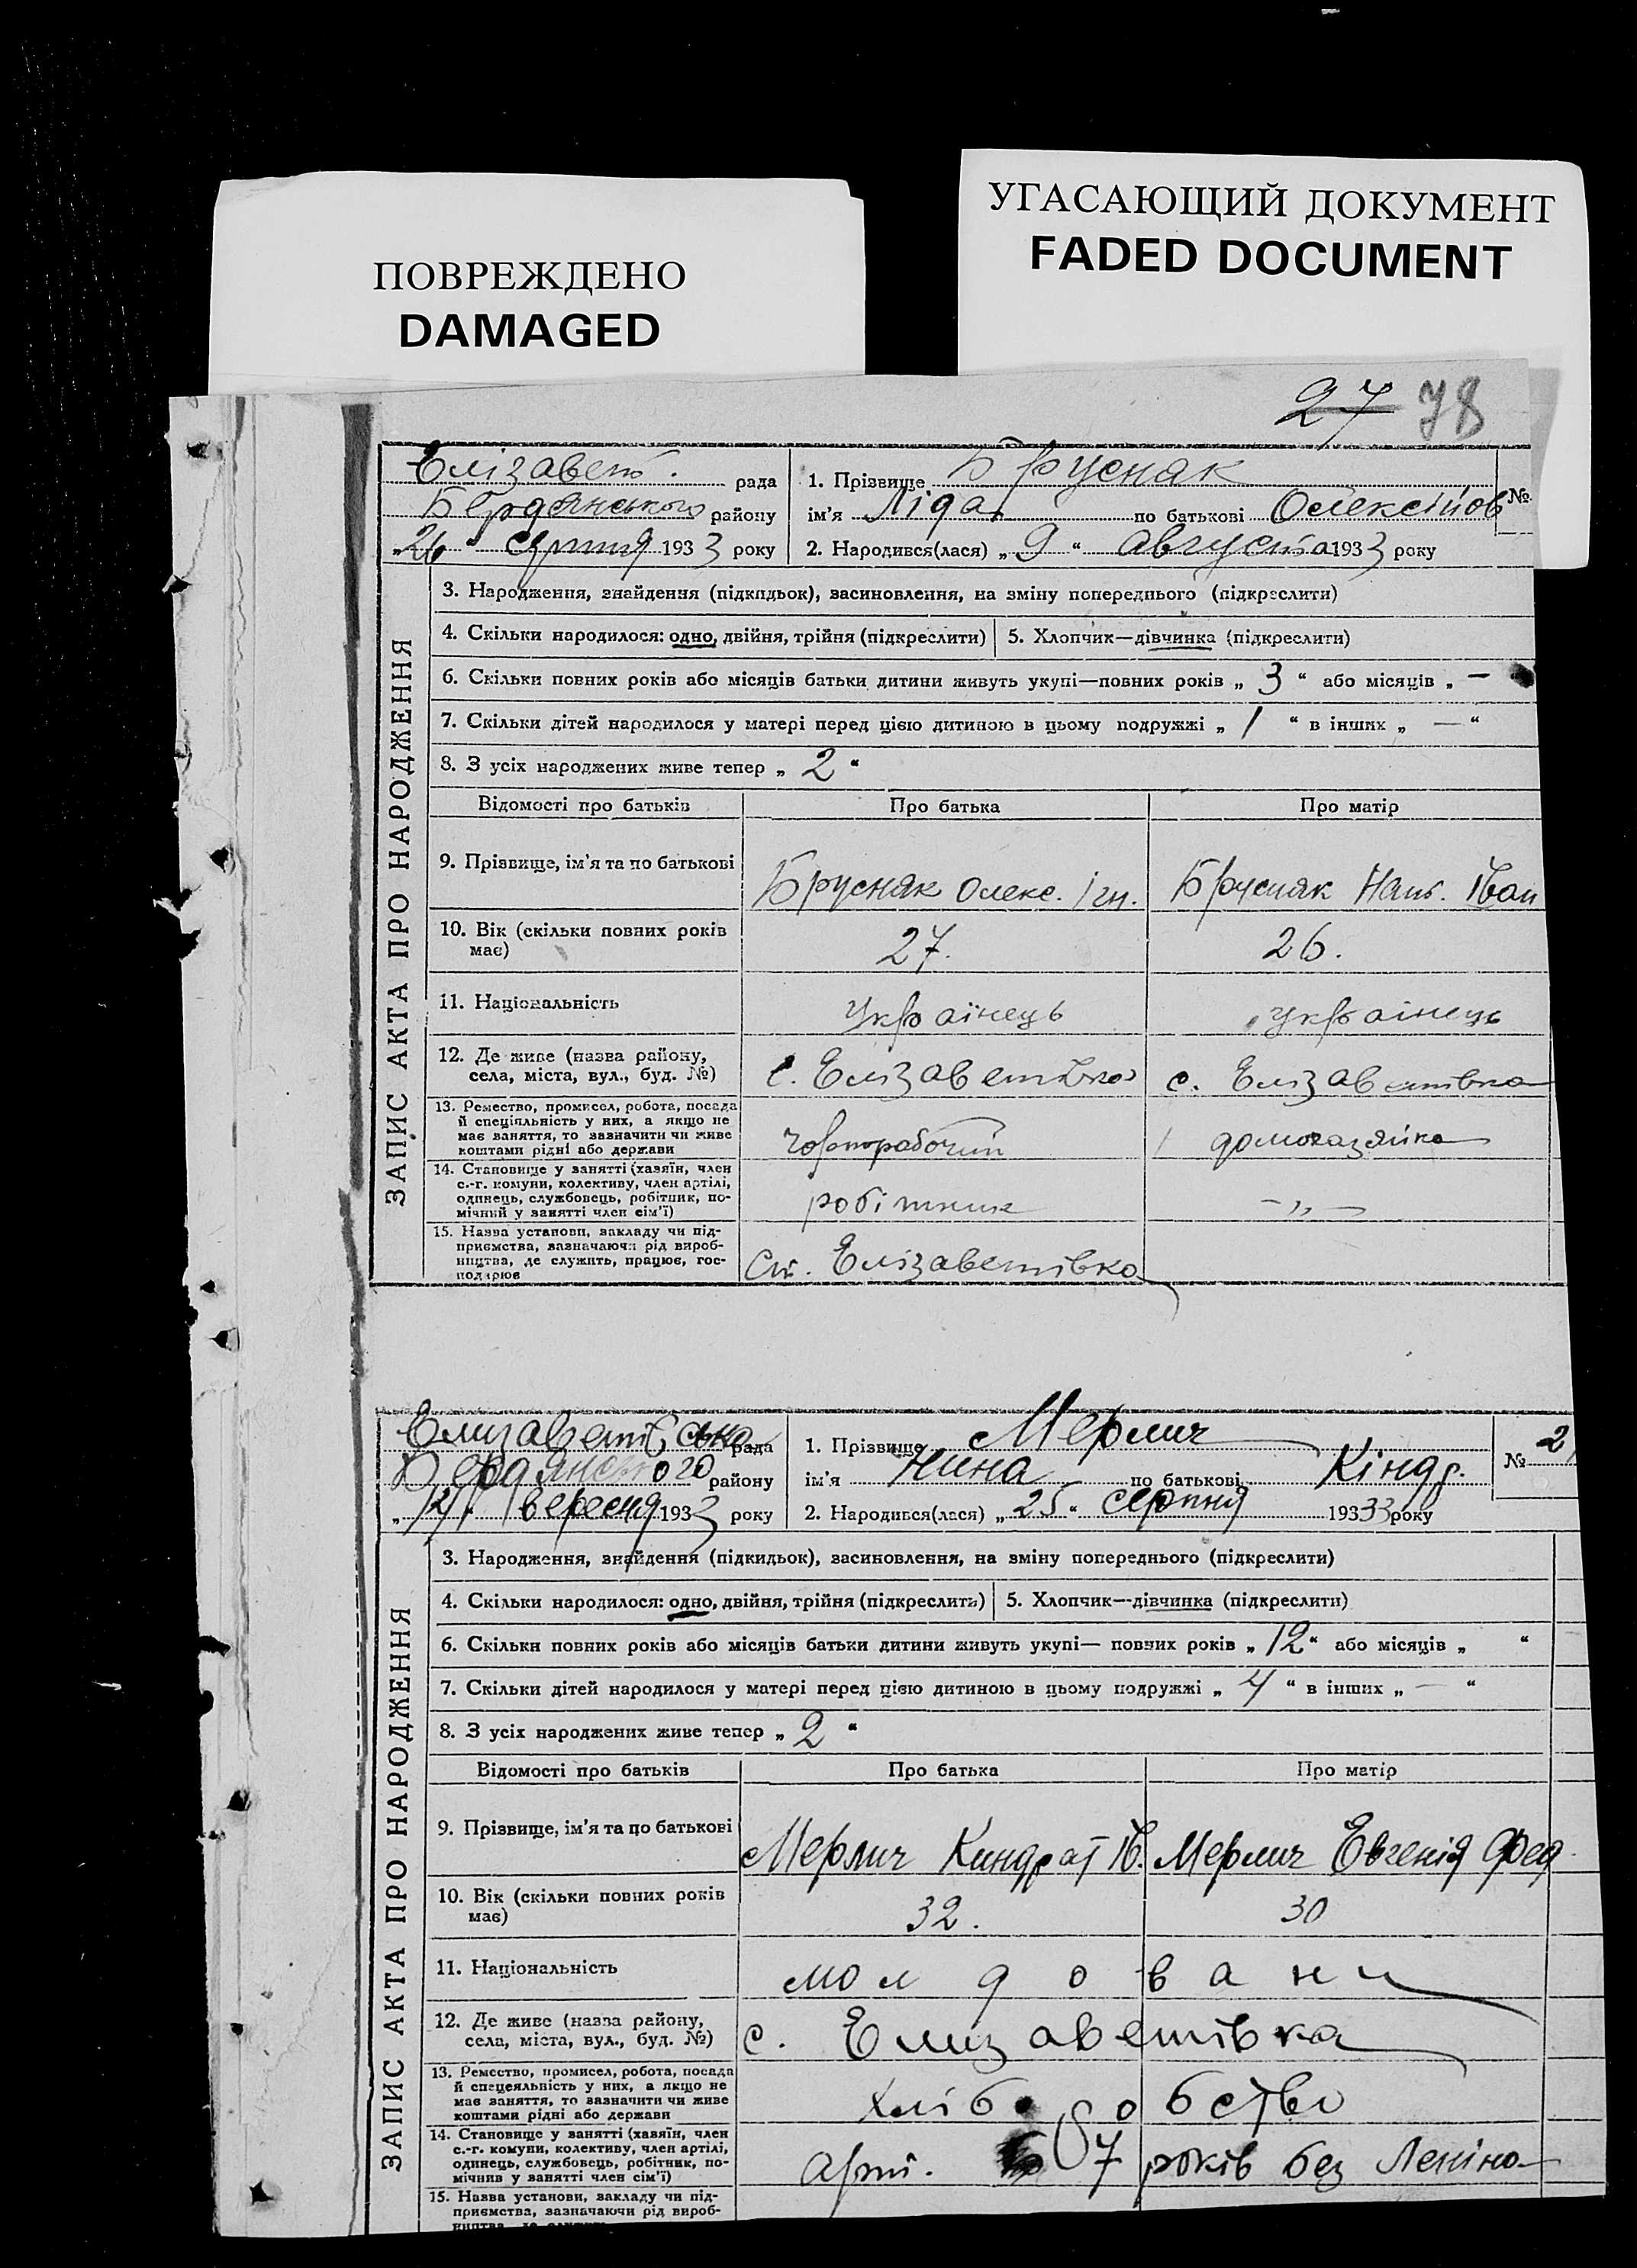 УГАСАЮЩИЙ ДОКУМЕНТ
FADED DOCUMENT
ПОВРЕЖДЕНО
DAMAGED
27 78
ЗАПИС АКТА ПРО НАРОДЖЕННЯ
Елізавет. рада
Бердянського району
„26“ серпня 1933 року
1. Прізвище Брусняк
ім'я Ліда по батькові Олексійов
№
2. Народився(лася) „9“ августа 1933 року
3. Народження, знайдення (підкидьок), засиновлення, на зміну попереднього (підкреслити)
4. Скільки народилося: одно, двійня, трійня (підкреслити) 5. Хлопчик—дівчинка (підкреслити)
6. Скільки повних років або місяців батьки дитини живуть укупі—повних років „3“ або місяців „—
7. Скільки дітей народилося у матері перед цією дитиною в цьому подружжі „1“ в інших „—“
8. З усіх народжених живе тепер „2“
Відомості про батьків Про батька Про матір
9. Прізвище, ім'я та по батькові Брусняк Олекс. Ігн. Брусняк Нат. Іван
10. Вік (скільки повних років
має) 27. 26.
11. Національність Українець українець
12. Де живе (назва району,
села, міста, вул., буд. №) с. Елізаветівка с. Елізаветівка
13. Ремество, промисел, робота, посада
й спеціяльність у них, а якщо не
має заняття, то зазначити чи живе
коштами рідні або держави чорнорабочий домохазяйка
14. Становище у занятті (хазяїн, член
с.-г. комуни, колективу, член артілі,
одинець, службовець, робітник, по-
мічний у занятті член сім'ї) робітник -„-
15. Назва установи, закладу чи під-
приємства, зазначаючи рід вироб-
ництва, де служить, працює, гос-
подарює Ст. Елізаветівка
ЗАПИС АКТА ПРО НАРОДЖЕННЯ
рада
Бердянського району
вересня 1933 року
1. Прізвище Мерлич
ім'я Нина по батькові Кіндр.
№ 2
2. Народився(лася) „25“ серпня 1933 року
3. Народження, знайдення (підкидьок), засиновлення, на зміну попереднього (підкреслити)
4. Скільки народилося: одно, двійня, трійня (підкреслить) 5. Хлопчик—дівчинка (підкреслити)
6. Скільки повних років або місяців батьки дитини живуть укупі— повних років „12“ або місяців „ “
7. Скільки дітей народилося у матері перед цією дитиною в цьому подружжі „4“ в інших „—“
8. З усіх народжених живе тепер „2“
Відомості про батьків Про батька Про матір
9. Прізвище, ім'я та по батькові Мерлич Киндрат Ів. Мерлич Евгенія Фед
10. Вік (скільки повних років
має) 32. 30
11. Національність молдовани
12. Де живе (назва району,
села, міста, вул., буд. №) с. Елизаветівка
13. Ремество, промисел, робота, посада
й спецеяльність у них, а якщо не
має заняття, то зазначити чи живе
коштами рідні або держави
14. Становище у занятті (хазяїн, член
с.-г. комуни, колективу, член артілі,
одинець, службовець, робітник, по-
мічнив у занятті член сім'ї) арт. 7 років без Леніна
15. Назва установи, закладу чи під-
приємства, зазначаючи рід вироб-